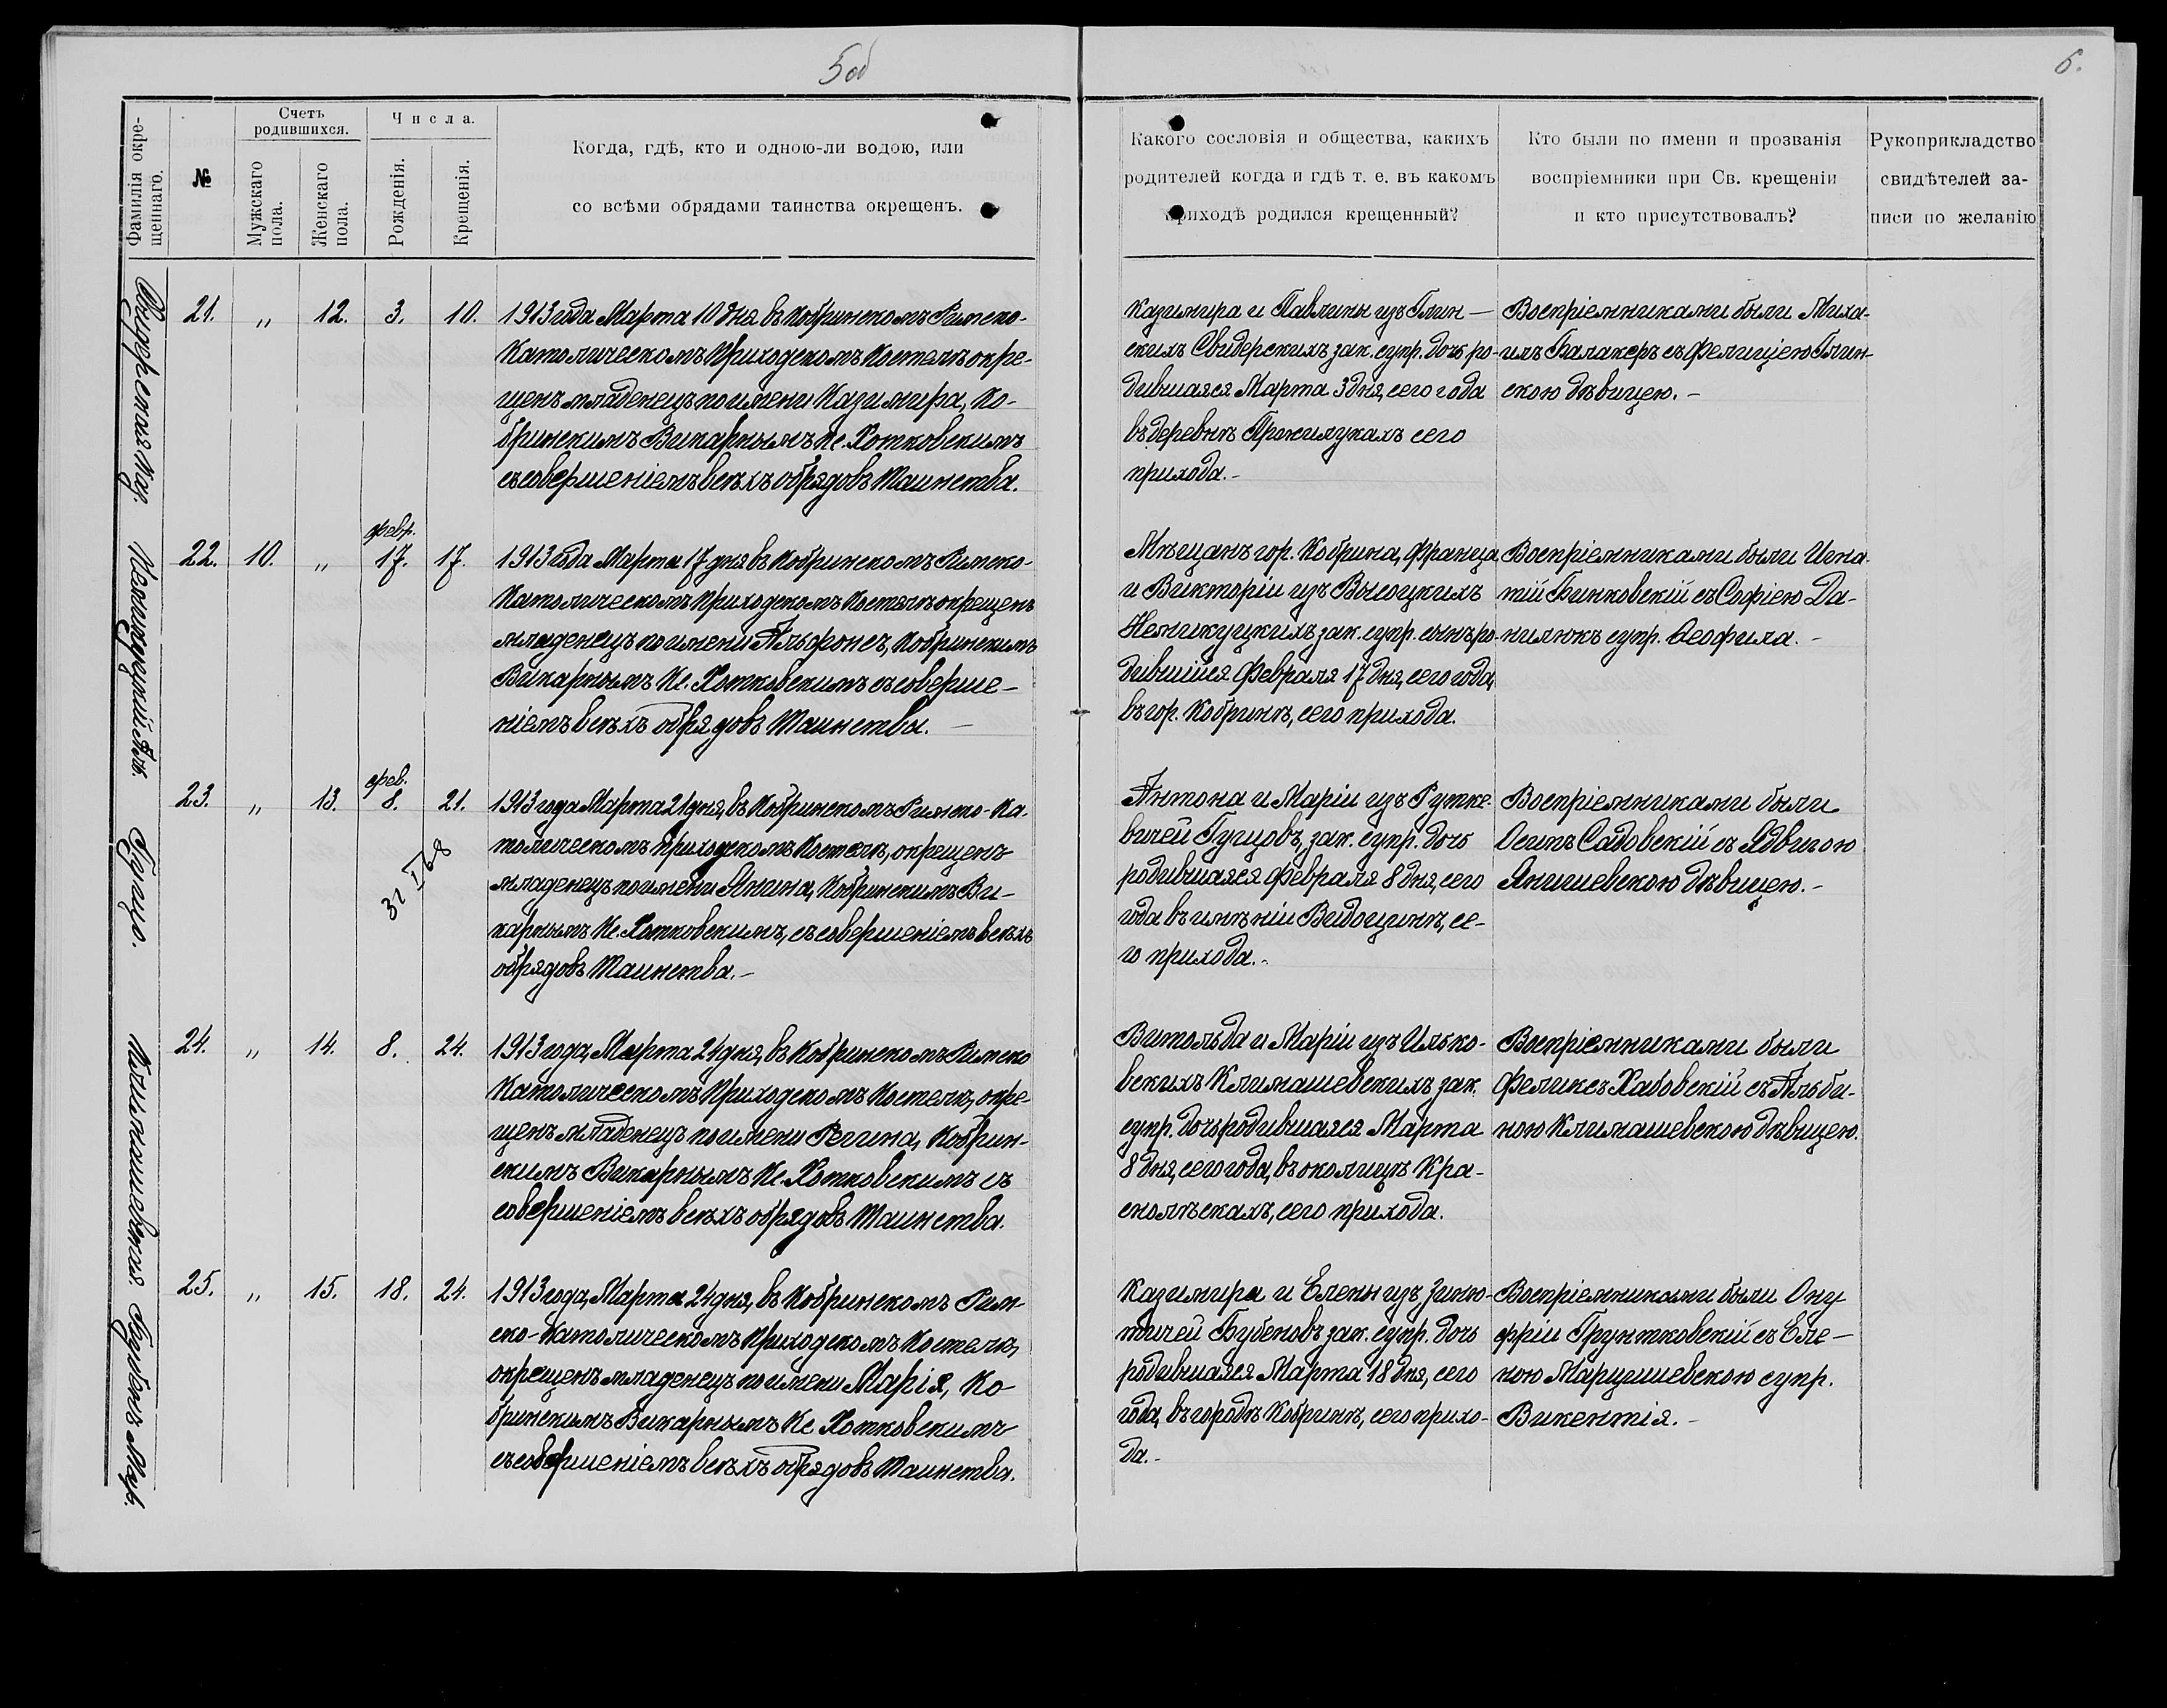 5об
6.
Фамилія окре-
щеннаго.
№
Счетъ
родившихся.
Мужскаго
пола.
Женскаго
пола.
Числа.
Рожденія.
Крещенія.
Когда, гдѣ, кто и одною-ли водою, или
со всѣми обрядами таинства окрещенъ.
Какого сословія и общества, какихъ
родителей когда и гдѣ т. е. въ какомъ
приходѣ родился крещенный?
Кто были по имени и прозванія
воспріемники при Св. крещеніи
и кто присутствовалъ?
Рукоприкладство
свидѣтелей за-
писи по желанію
Свидерская Каз.
21. " 12. 3. 10.
1913 года Марта 10 дня въ Кобринскомъ Римско-
Католическомъ Приходскомъ Костелѣ окре-
щенъ младенецъ по имени Казимира, Ко-
бринскимъ Викарнымъ Кс. Хотковскимъ
съ совершеніемъ всѣхъ обрядовъ Таинства.
Казимира и Павлины изъ Глин-
скихъ Свидерскихъ зак. супр. дочь ро-
дившаяся Марта 3 дня, сего года
въ деревнѣ сего
прихода.-
Воспріемниками были Миха-
илъ Балакеръ съ Фелиціею Глин-
скою дѣвицею.-
22. 10. " февр. 17. 17.
1913 года Марта 17 дня въ Кобринскомъ Римско-
Католическомъ Приходскомъ Костелѣ окрещенъ
младенецъ по имени Альфонсъ, Кобринскимъ
Викарнымъ Кс. Хотковскимъ съ соверше-
ніемъ всѣхъ обрядовъ Таинства.-
Мѣщанъ гор. Кобрина, Франца
и Викторіи изъ Высоцкихъ
зак. супр. сынъ ро-
дившійся Февраля 17 дня, сего года,
въ гор. Кобринѣ, сего прихода.
Воспріемниками были Игна-
тій Бинковскій съ Софіею Да-
нилюкъ супр. Ѳеофила.-
Гуцуо.
23. " 13. фев. 8. 21.
32 I 68
1913 года Марта 21 дня, въ Кобринскомъ Римско-Ка-
толическомъ Приходскомъ Костелѣ, окрещенъ
младенецъ по имени Янина, Кобринскимъ Ви-
карнымъ Кс. Хотковскимъ, съ совершеніемъ всѣхъ
обрядовъ Таинства.-
Антона и Маріи изъ Рутке-
вичей Гуцовъ, зак. супр. дочь
родившаяся Февраля 8 дня, сего
года въ имѣніи Видощинѣ, се-
го прихода.-
Воспріемниками были
Осипъ Садовскій съ Ядвигою
Янишевскою дѣвицею.-
Климашевская
24. " 14. 8. 24.
1913 года, Марта 24 дня, въ Кобринскомъ Римско
Католическомъ Приходскомъ Костелѣ, окре-
щенъ младенецъ по имени Регина, Кобрин-
скимъ Викарнымъ Кс. Хотковскимъ съ
совершеніемъ всѣхъ обрядовъ Таинства.
Витольда и Маріи изъ Илько-
вскихъ Климашевскихъ зак.
супр. дочь родившаяся Марта
8 дня, сего года, въ околицѣ Кра-
снолѣскахъ, сего прихода.
Воспріемниками были
Феликсъ Хабовскій съ Альби-
ною Климашевскою дѣвицею.
Бубенъ Марія.
25. " 15. 18. 24.
1913 года, Марта 24 дня, въ Кобринскомъ Рим-
ско-Католическомъ Приходскомъ Костелѣ,
окрещенъ младенецъ по имени Марія, Ко-
бринскимъ Викарнымъ Кс. Хотковскимъ
съ совершеніемъ всѣхъ обрядовъ Таинства.
Казимира и Елены изъ Зиню-
тичей Бубеновъ зак. супр. дочь
родившаяся Марта 18 дня, сего
года, въ городѣ Кобринѣ, сего прихо-
да.-
Воспріемниками были Ону
фрій Грунтковскій съ Еле-
ною Марцишевскою супр.
Викентія.-